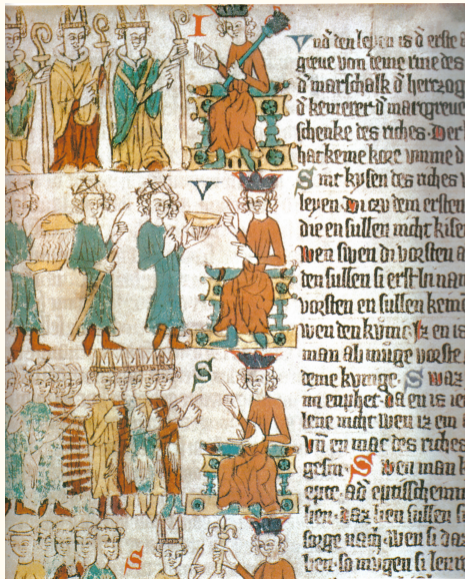 I
Vnd den leyen is d erste a
greue von deme rine des
d marschalk d herzog
d kemerer d margreue
schenke des riches. Der
hat keine kore vmme d
V
Sint kysen des riches v
leyen. Di czv dem ersten
die en sullen nicht kise
wen swen di vorsten a
len sullen si erst In nam
vorsten en sullen keine
S
wen den kvnic. Iz en is
man ab mvge vorste
deme kvnige. Swaz
in enphet. da en is ie
lene nicht wen iz ein
Vn en mac des riches
gesin. Swen man k
epte. ad eptischeinn
ben. daz lien sullen si
S
sorge nach. wen si daz
ben. so mvgen si lenre